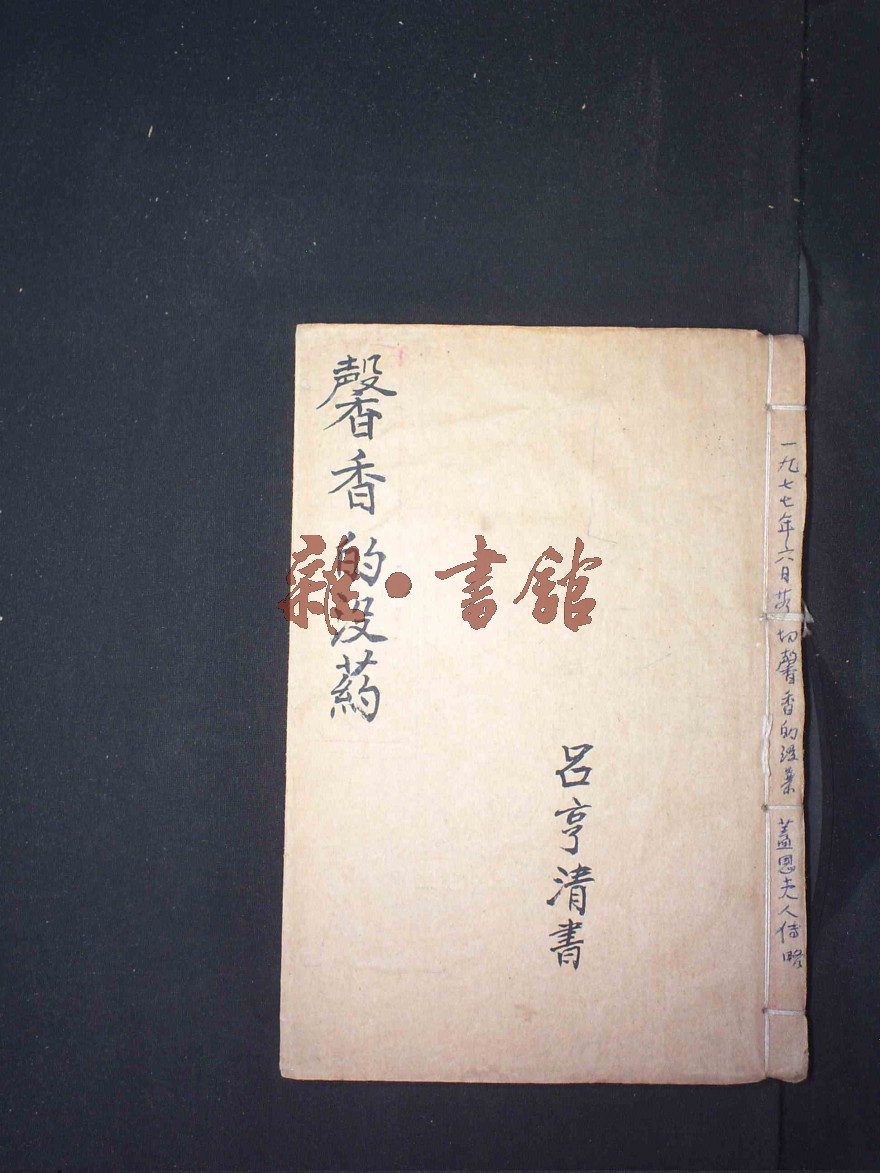 一九七七年六月 馨香的没薬 蓋恩夫人傳略
呂亨清書
馨香的没葯
雜•書舘